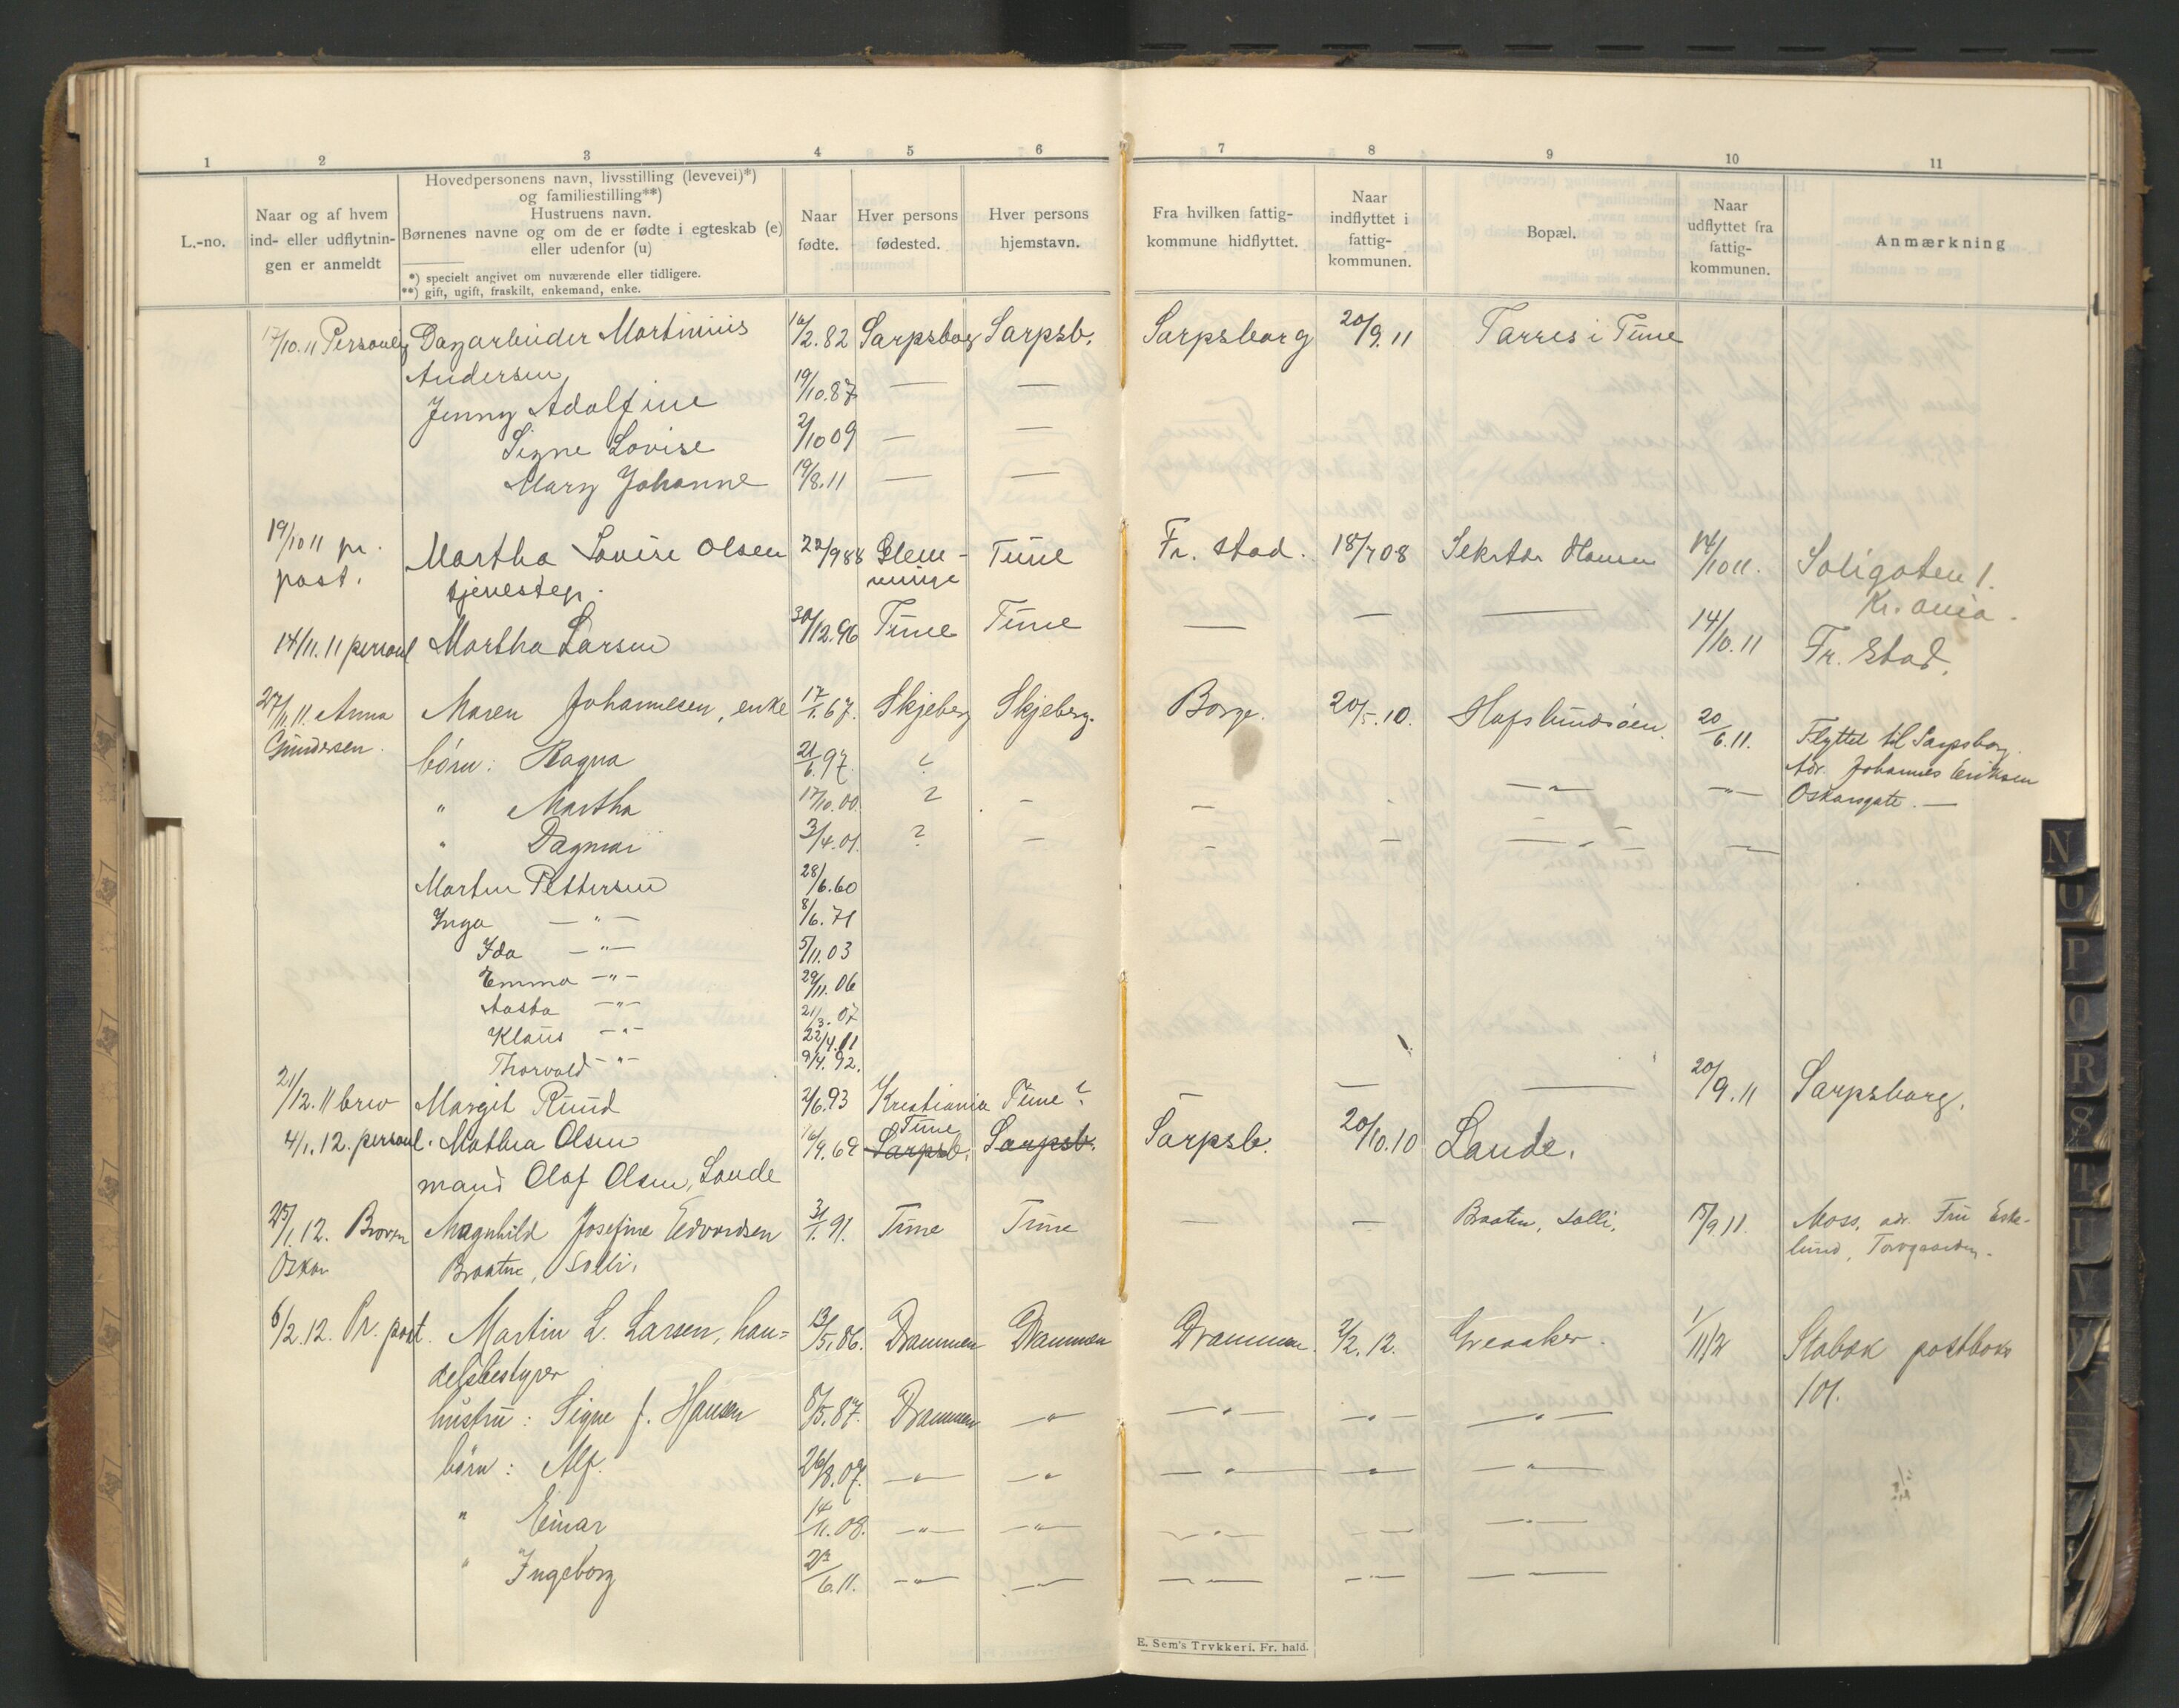 1 2 3 4 5 6 7 8 9 10 11
L.-no.
Naar og af hvem
ind- eller udflytnin-
gen er anmeldt
Hovedpersonens navn, livsstilling (levevei)*)
og familiestilling**)
Hustruens navn.
Børnenes navne og om de er fødte i egteskab (e)
eller udenfor (u)
*) specielt angivet om nuværende eller tidligere.
**) gift, ugift, fraskilt, enkemand, enke.
Naar
fødte.
Hver persons
fødested.
Hver persons
hjemstavn.
Fra hvilken fattig-
kommune hidflyttet.
Naar
indflyttet i
fattig-
kommunen.
Bopæl.
Naar
udflyttet fra
fattig-
kommunen.
Anmærkning
17/10.11 Personlig Dagarbeider Martinius 16/2.82 Sarpsborg Sarpsb. Sarpsborg 20/9.11 Tarres i Tune
Andersen
Jenny Adolfine 19/10.87 — —
Signe Lovise 2/10 09 — —
Mary Johanne 19/8.11 — —
19/10 11 pr. Martha Lovise Olsen 22/9 88 Glem- Tune Fr. stad. 18/7 08 Sekrtær Hansen 14/10 11. Soligaten 1.
post. tjenestep. minge Kr. ania.
14/11.11 personl Martha Larsen 30/12.96 Tune Tune — — — 14/10.11 Fr. Stad.
27/11.11. Anna Maren Johannesen, enke 17/1.67. Skjeberg Skjeberg. Borge. 20/5.10. Hafslundsøen. 20/6.11. Flyttet til Sarpsborg.
Gundersen. børn: Ragna 21/6.97 ? Adr. Johannes Eriksen
" Martha 17/10.00. ? — — —"— —"— Oskarsgate. —
" Dagmar 3/4.01. ? — — — — —
Martin Pettersen 28/6.60
Inga —"— 8/6.71
Ida —"— 5/11.03
Emma —"— 29/11.06
Aasta —"— 21/3.07
Klaus —"— 22/4.11
Thorvald —"— 9/4.92.
21/12.11 brev Margit Ruud 2/6.93 Kristiania Tune ? — — — 20/9.11 Sarpsborg.
Tune
4/1.12. personl. Mathea Olsen 16/9.69 Sarpsb. Sarpsb. Sarpsb. 20/10.10 Lande.
mand Olaf Olsen, Lande
25/1.12. Broren Magnhild Josefine Edvardsen 31/1.91. Tune Tune — — Braaten, Solli. 15/9.11. Moss, adr. Fru Esk-
Oskar Braaten, Solli. lund,
6/2.12. Pr. post. Martin L. Larsen, han= 13/5.86. Drammen Drammen Drammen. 2/2.12. Greaaker. 1/11/12 Stabæk postboks
delsbestyrer 101.
hustru: Signe f. Hansen 8/5.87. Drammen —"— —"— —"— —"—
børn: Alf. 26/8.07. —"— —"— —"— —"— —"—
" Einar 14/11.08. —"— —"— —"— — — —"—
" Ingeborg 23/6.11. —"— —"— —"— —"— —"—
E. Sem's Trykkeri. Fr. hald.
N
O
P
Q
R
S
T
U
V
W
X